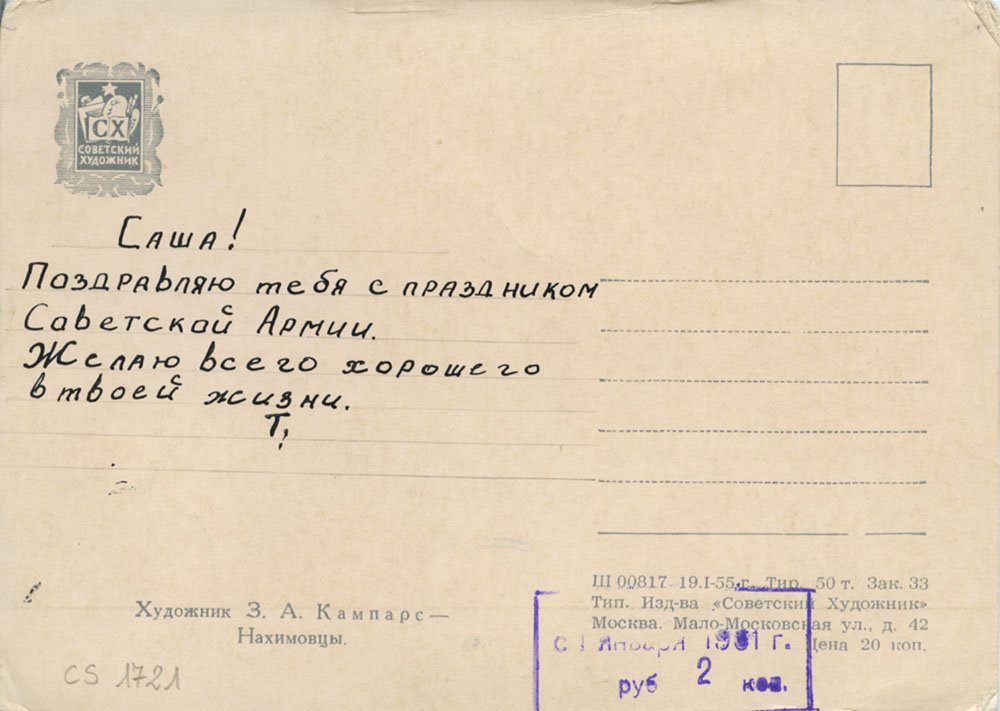 СХ
СОВЕТСКИЙ
ХУДОЖНИК
Саша!
Поздравляю тебя с праздником
Советской Армии.
Желаю всего хорошего
в твоей жизни.
Т.
Художник З. А. Кампарс —
Нахимовцы.
CS 1721
Ш 00817 19.I-55 г. Тир. 50 т. Зак. 33
Тип. Изд-ва «Советский Художник»
Москва. Мало-Московская ул., д. 42
Цена 20 коп.
с 1 января 1961 г.
руб 2 коп.